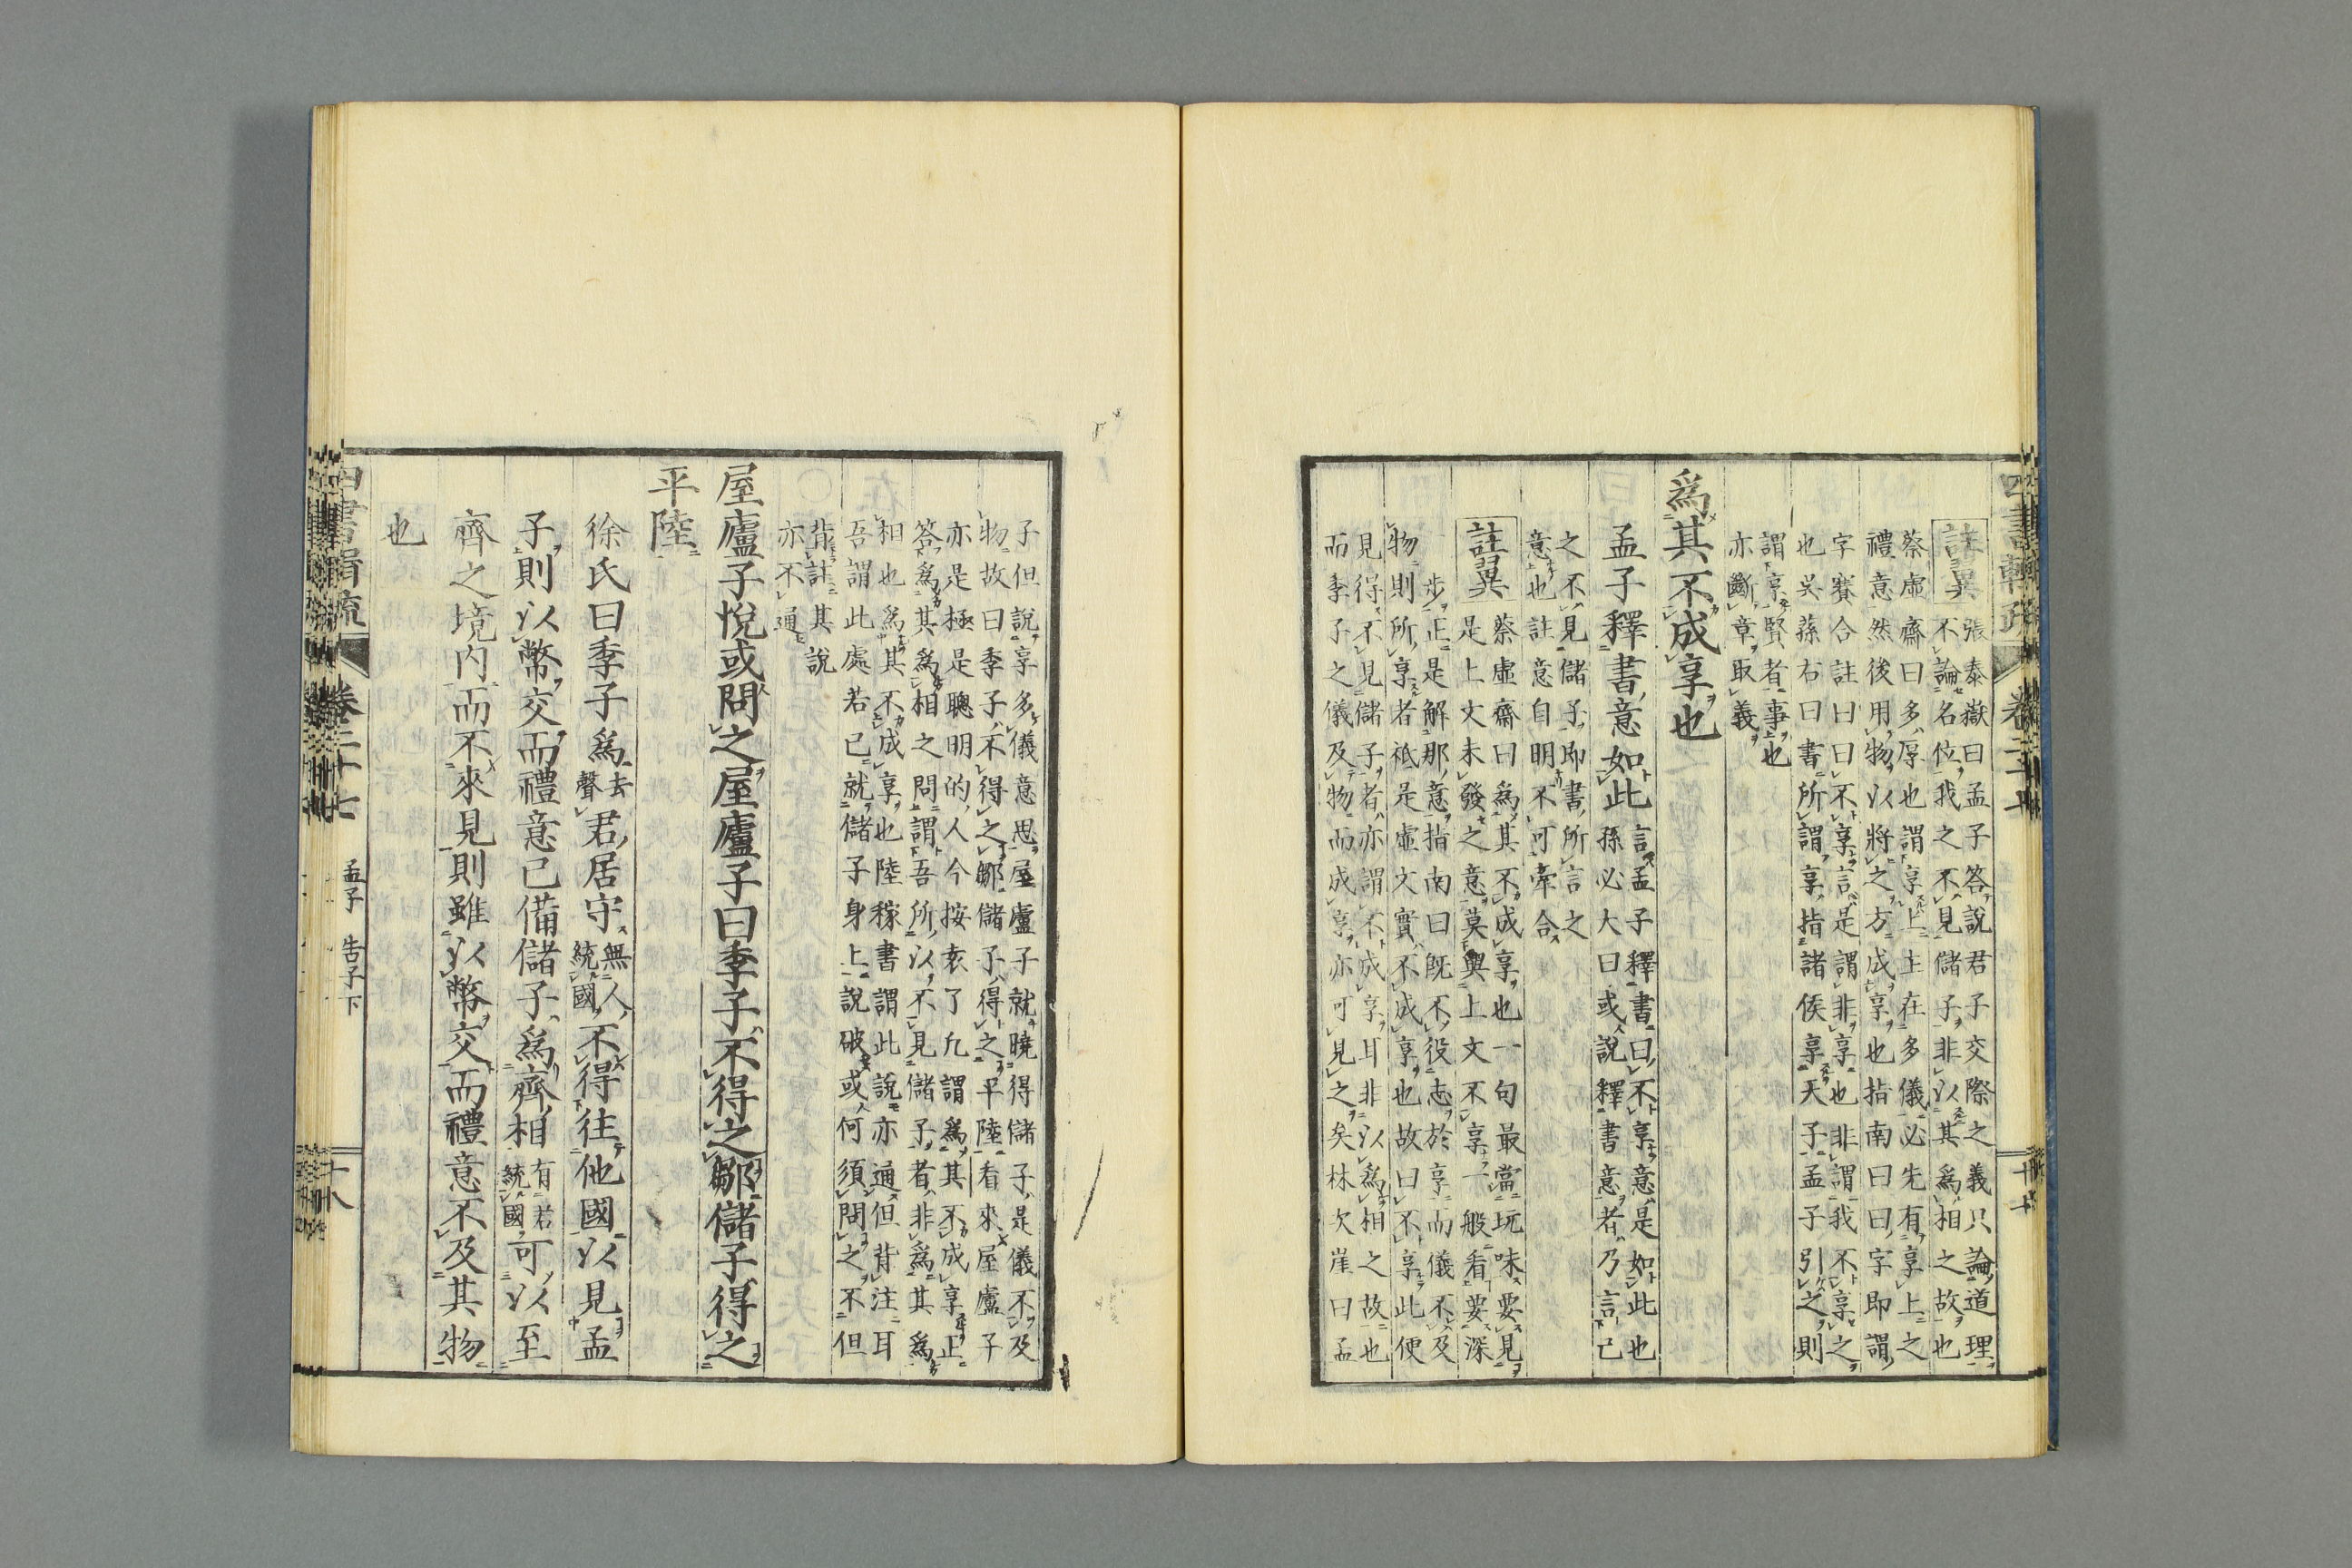 四書輯疏 卷二十七 十七
註翼 張泰嶽曰孟子答說君子交際之義只論道理
不論名位我之不見儲子非以其爲相之故也
蔡虛齋曰多厚也謂享上主在多儀必先有享上之
禮意然後用物以將之方成享也指南曰曰字即謂
字賽合註曰曰不享言是謂非享也非謂我不享之
也吳蓀右曰書所謂享指諸侯享天子孟子引之則
謂享賢者事也
亦斷章取義
爲其不成享也
孟子釋書意如此
言孟子釋書曰不享意是如此也
孫必大曰或說釋書意者乃言已
之不見儲子即書所言之
意也註意自明不可牽合
註翼 蔡虛齋曰爲其不成享也一句最當玩味要見
是上文未發之意莫與上文不享一般看要深
步正是解那意指南曰旣不役志於享而儀不及
物則所享者祗是虛文實不成享也故曰不享此便
見得不見儲子者亦謂不成享耳非以爲相之故也
而季子之儀及物而成享亦可見之矣林次崖曰孟
子但說享多儀意思屋廬子就曉得儲子是儀不及
物故曰季子不得之鄒儲子得之平陸看來屋廬子
亦是極是聰明的人今按袁了凡謂爲其不成享正
答爲其爲相之問謂吾所以不見儲子者非爲其爲
相也爲其不成享也陸稼書謂此說亦通但背注耳
吾謂此處若已就儲子身上說破或何須問之不但
背註其說
亦不通
屋廬子悅或問之屋廬子曰季子不得之鄒儲子得之
平陸
徐氏曰季子爲去聲君居守無人統國不得往他國以見孟
子則以幣交而禮意已備儲子爲齊相有若統國可以至
齊之境內而不來見則雖以幣交而禮意不及其物
也
四書輯疏 卷二十七 孟子 告子下 十八